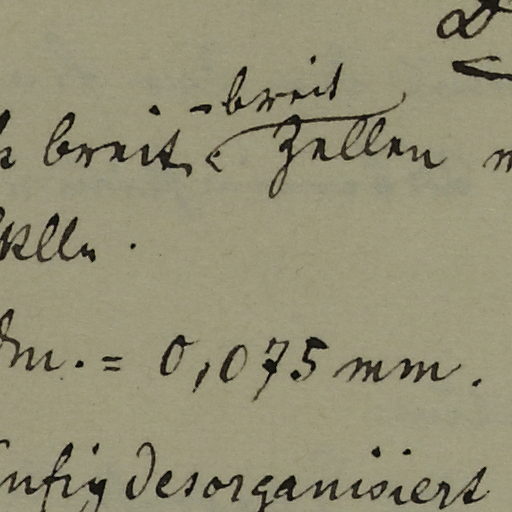 -breit
breit, Zellen
Dm. = 0,075 mm.
häufig desorganisiert